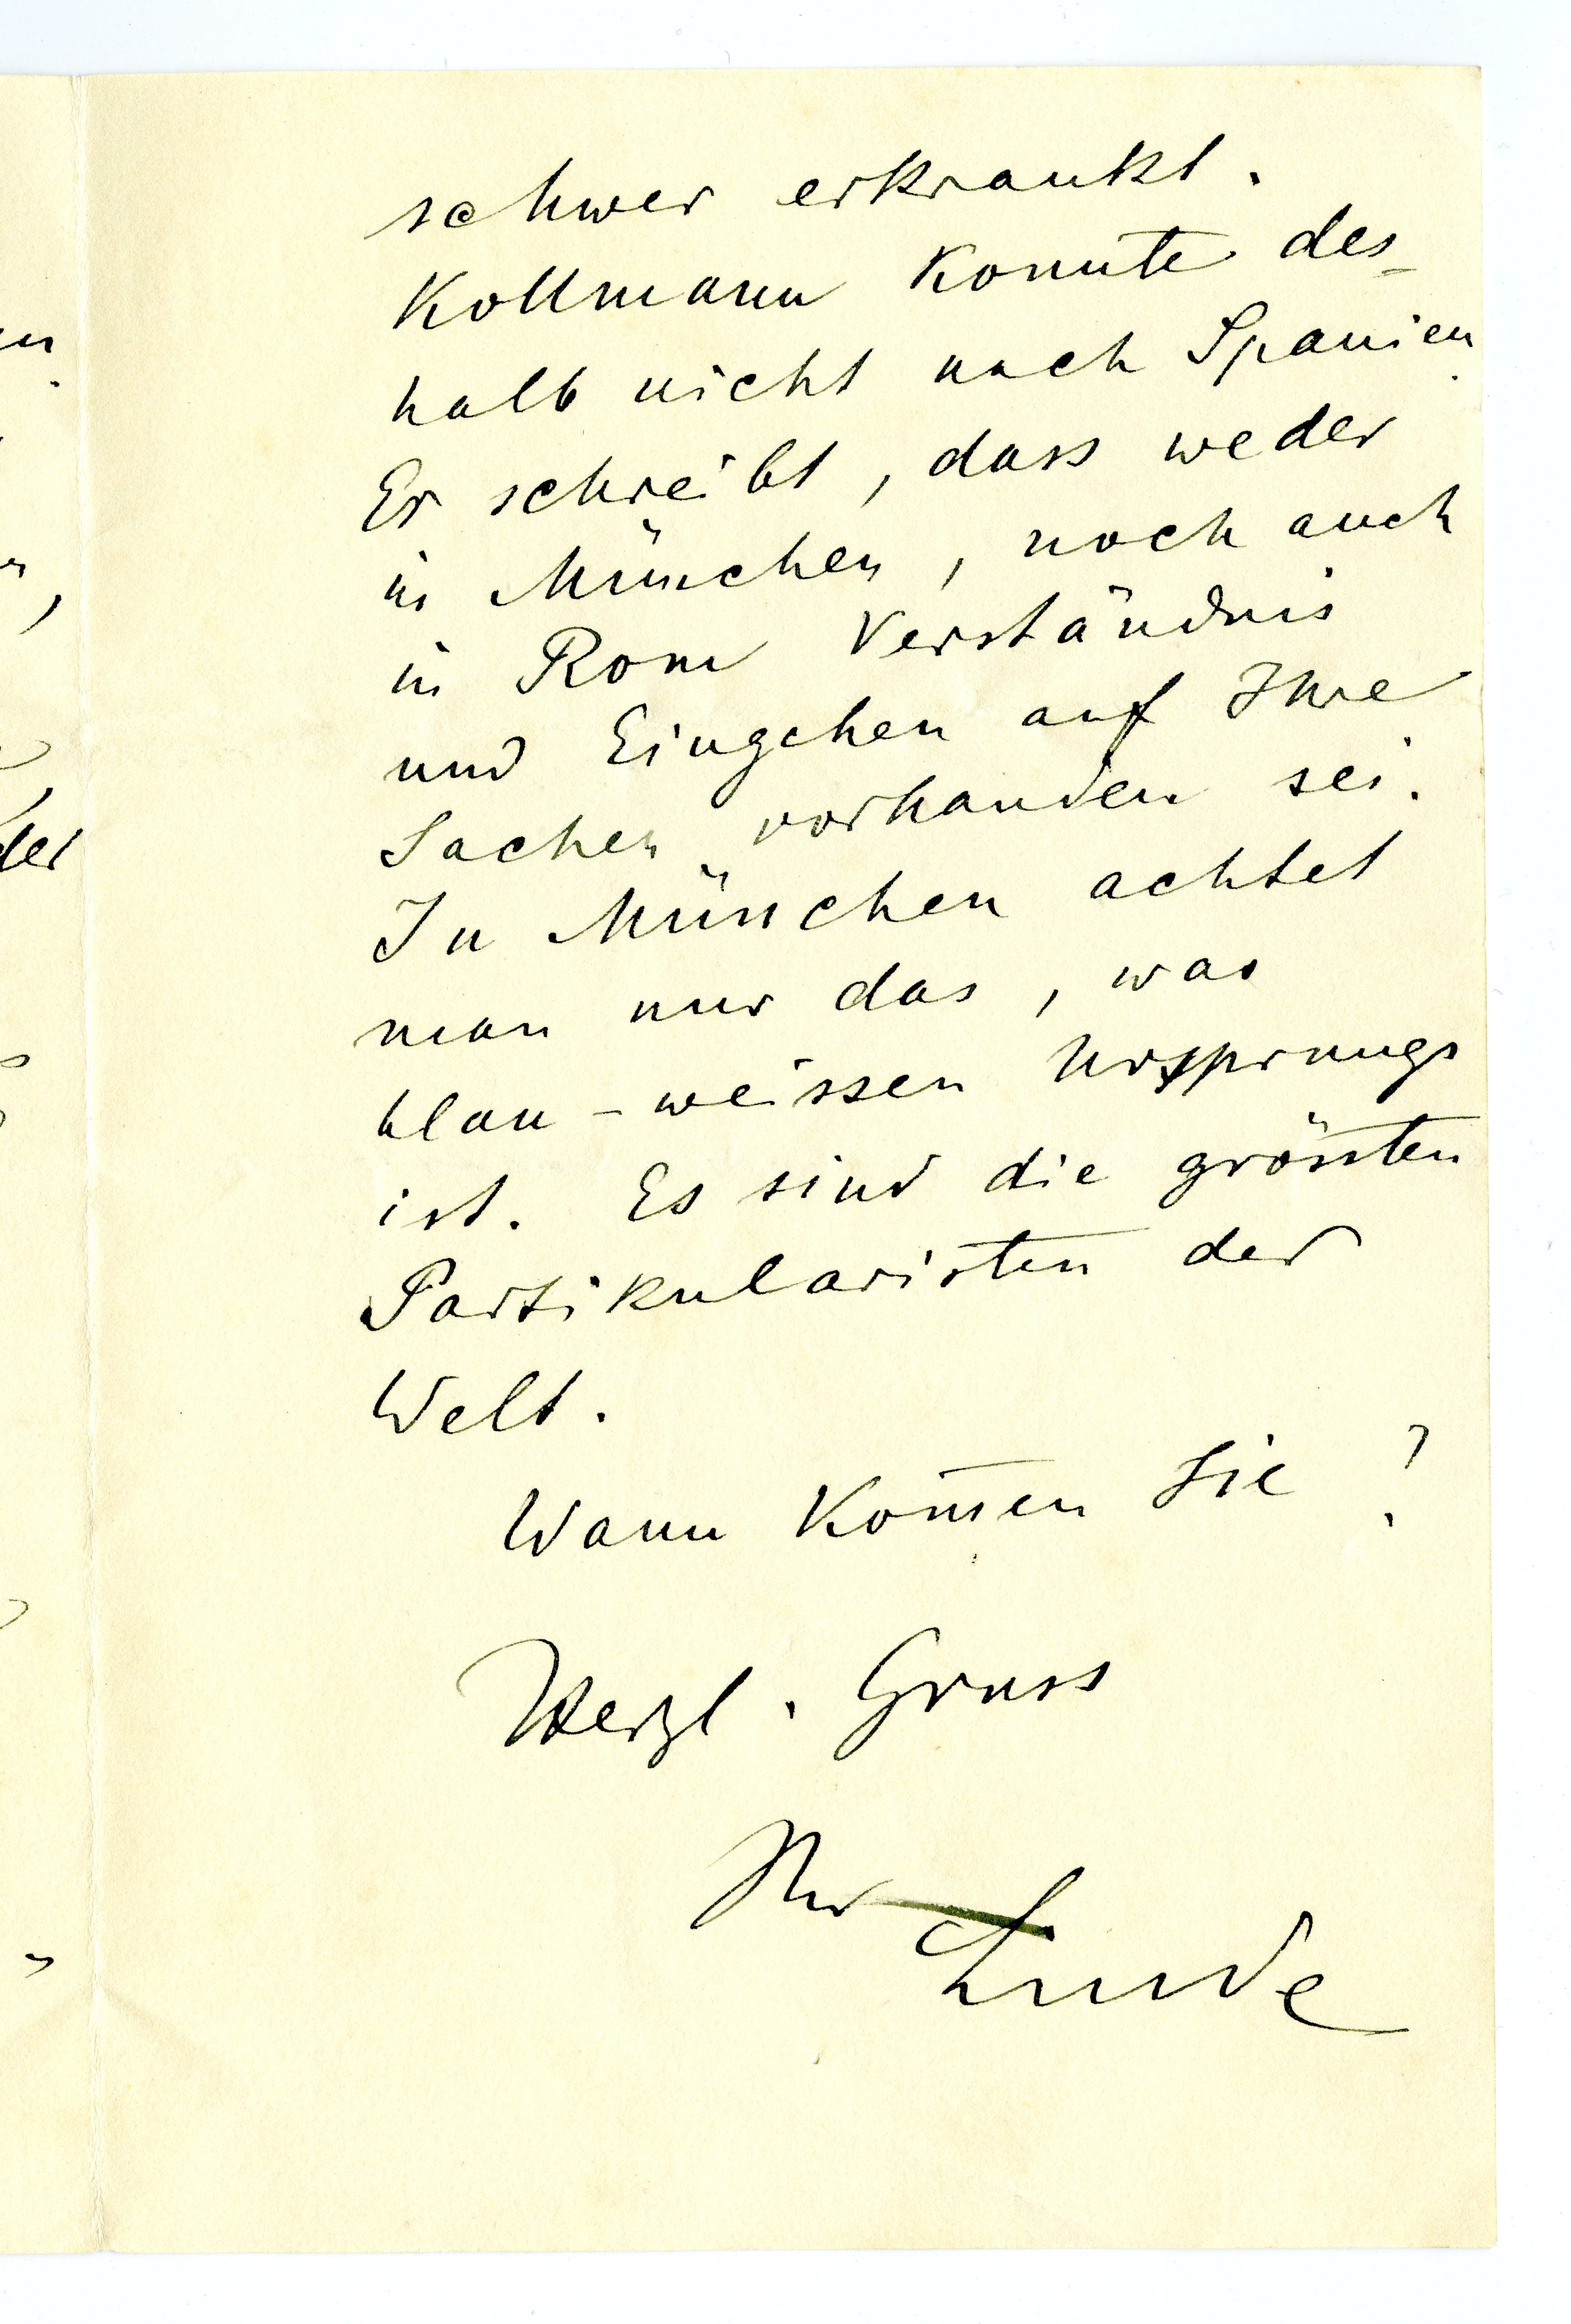 schwer erkrankt.
Kollmann konnte des-
halb nicht nach Spanien.
Er schreibt, dass weder
in München, noch auch
in Rom Verständnis
und Eingehen auf Ihre
Sachen vorhanden sei.
In München achtet
man nur das, was
blau-weissen Ursprungs
ist. Es sind die grössten
Partikularisten der
Welt.
Wann kom̅en Sie?
Herzl. Gruss
Ihr
Linde